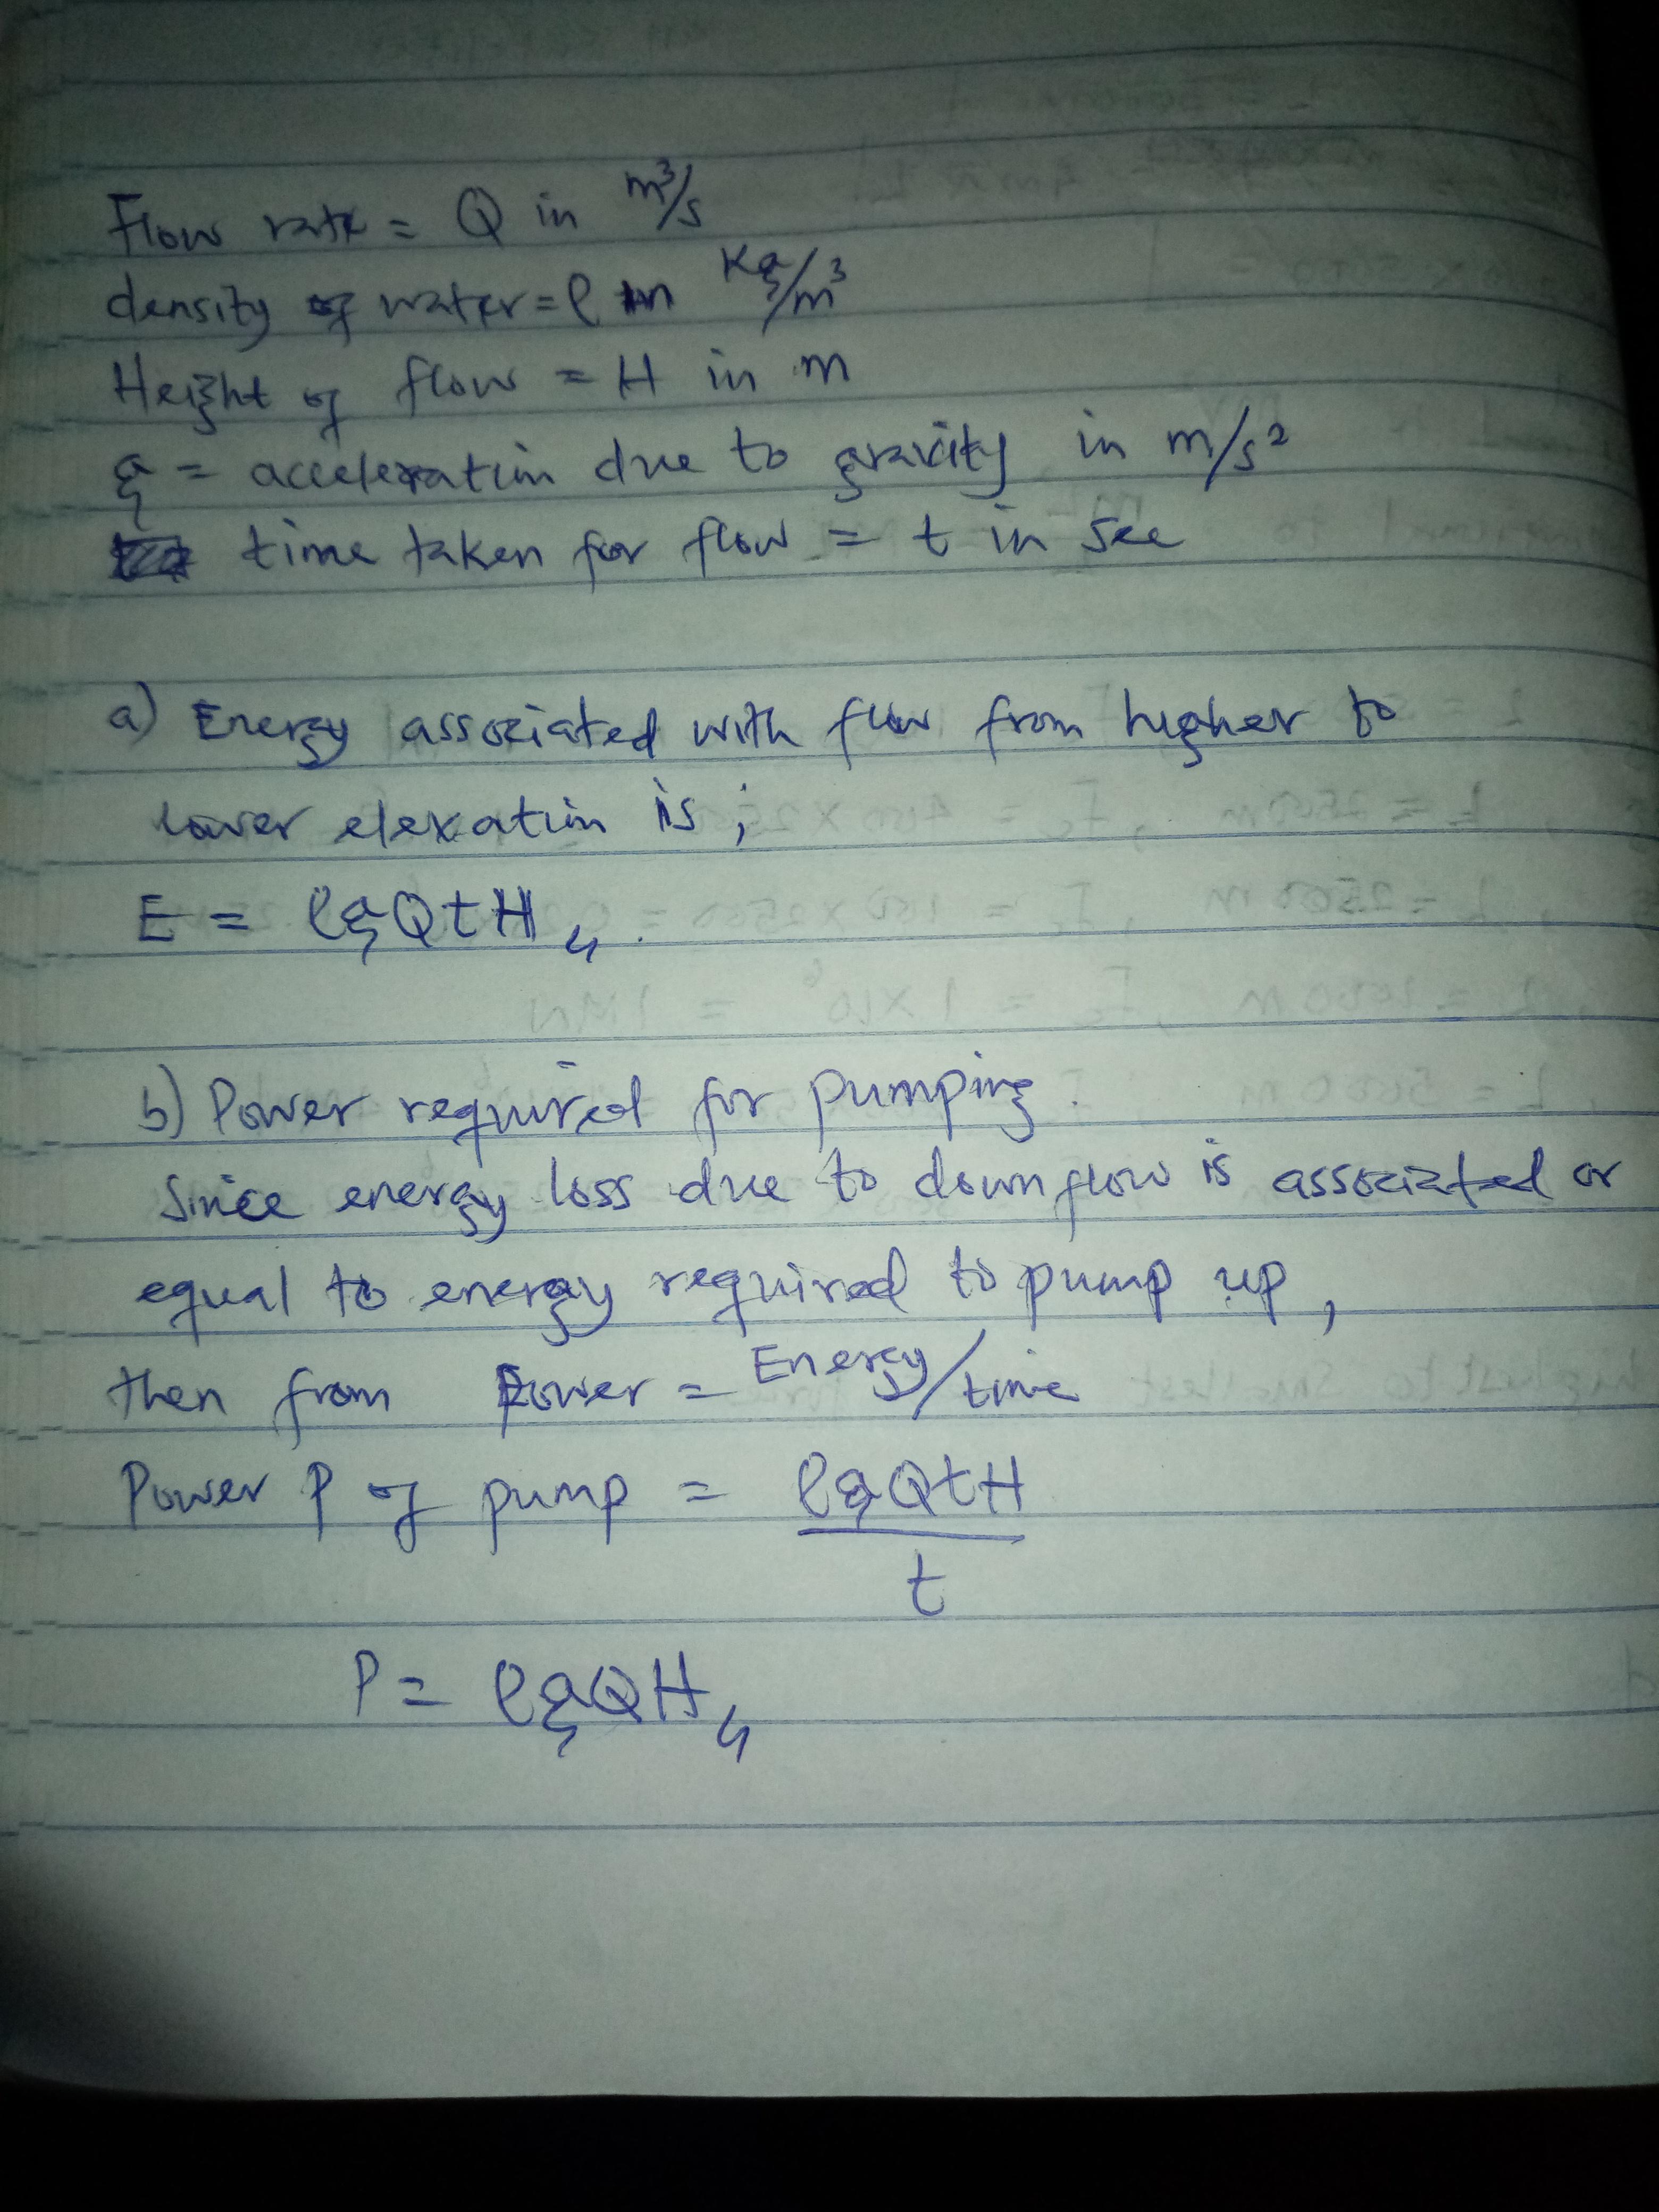 Flow rate = Q in m³/s
density of water = ρ in Kg/m³
Height of flow = H in m
g = acceleration due to gravity in m/s²
time taken for flow = t in sec
a) Energy associated with flow from higher to
lower elevation is ;
E = ρgQtH
b) Power required for pumping.
Since energy loss due to downflow is associated or
equal to energy required to pump up,
then from Power = Energy/time
Power P of pump = ρgQtH
t
P = ρgQH